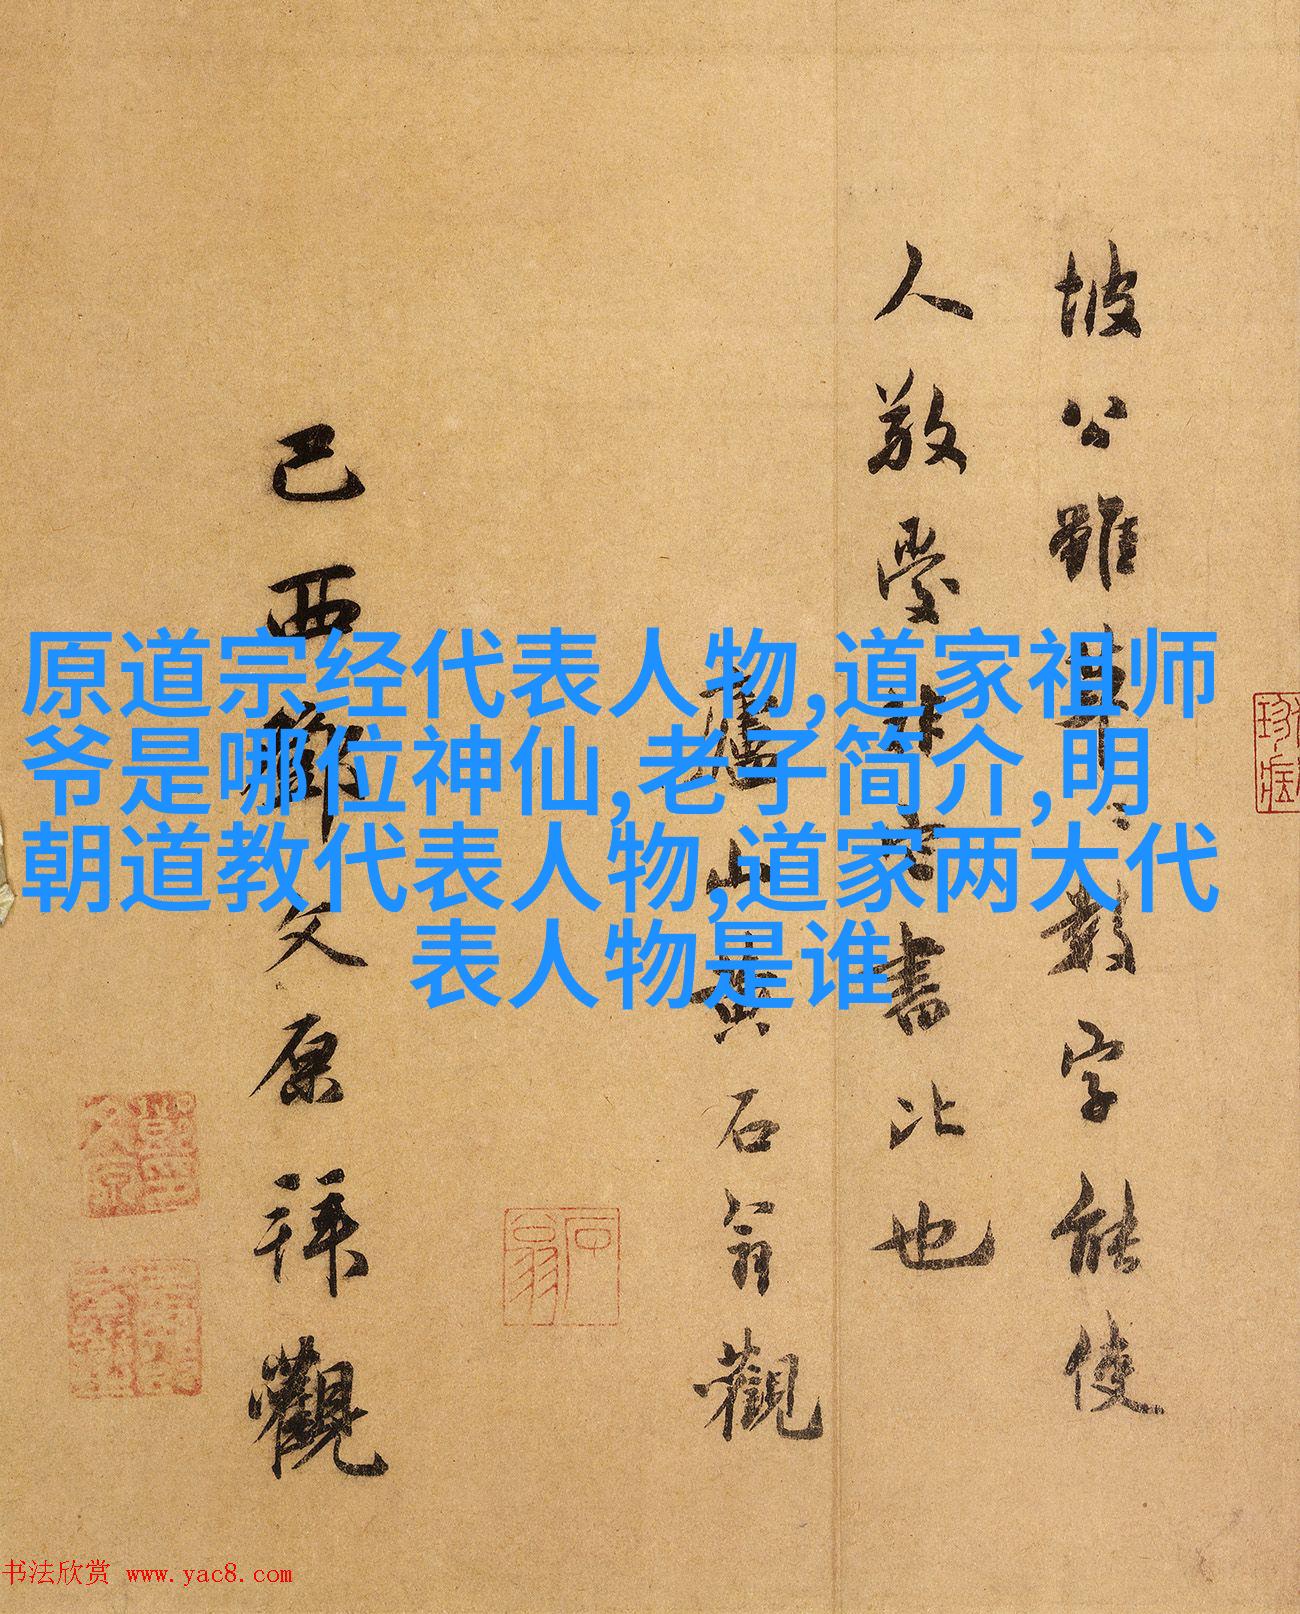 原道宗经代表人物,道家祖师
爷是哪位神仙,老子简介,明
朝道教代表人物,道家两大代
表人物是谁
坡公虽草草数字能使
人敬爱
书比也
山黄石翁觀
己酉
文原拜觀
石翁
书法欣赏 www.yac8.com